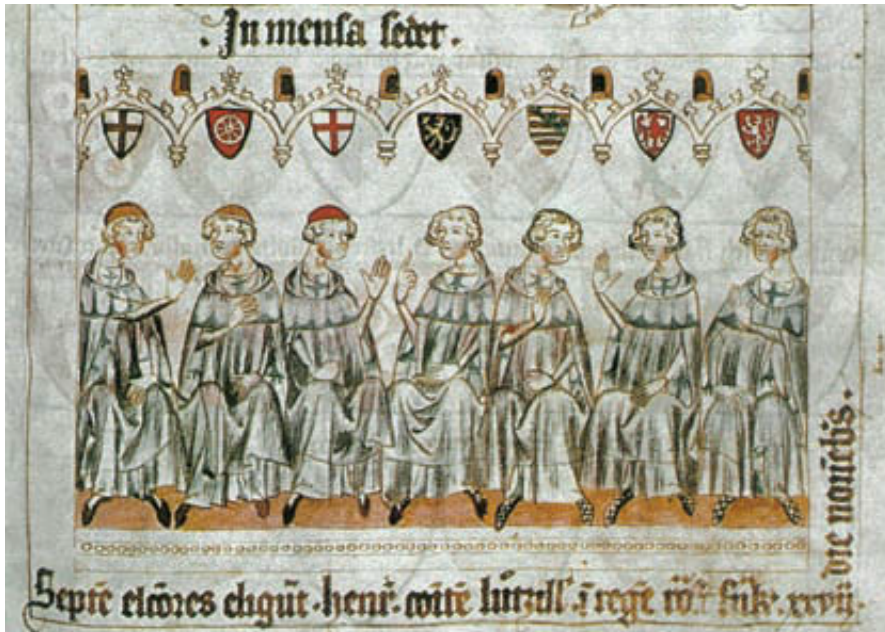 · In mensa sedet ·
Septē elcōres eligūt · henr̄ · cōitē lucz̄ll' · ī regē rō. · xxvij ·
die nouēbis ·